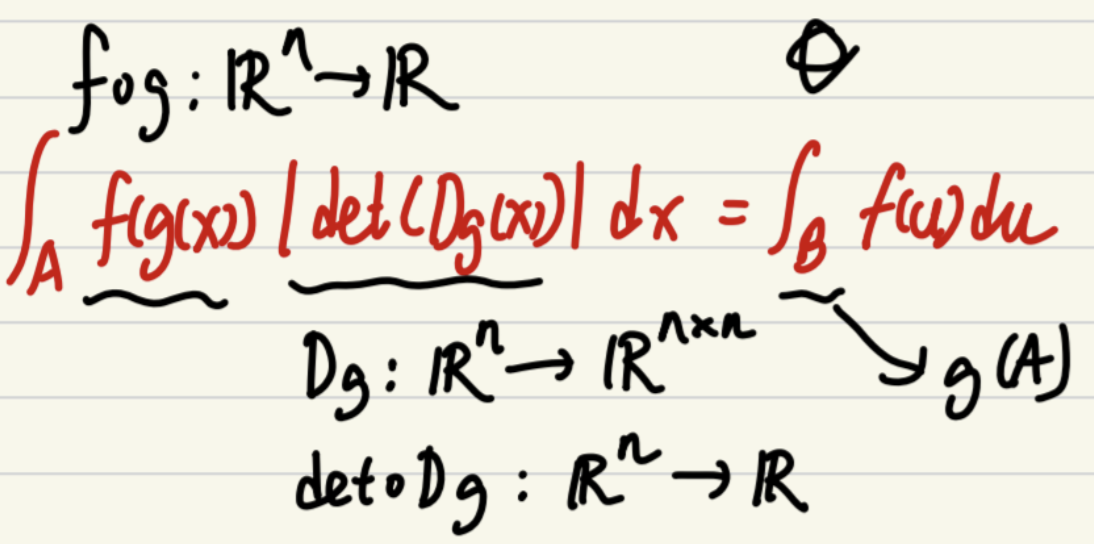 f∘g : ℝⁿ → ℝ
∫_A f(g(x)) |det(Dg(x))| dx = ∫_B f(u) du
g(A)
Dg : ℝⁿ → ℝⁿˣⁿ
det∘Dg : ℝⁿ → ℝ